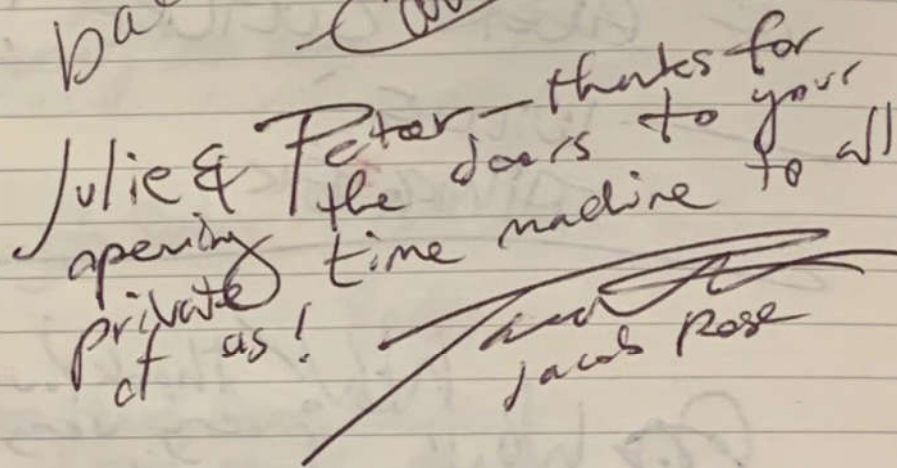 ba
Julie & Peter - thanks for
opening the doors to your
private time machine to all
of us!
Jacob Rose